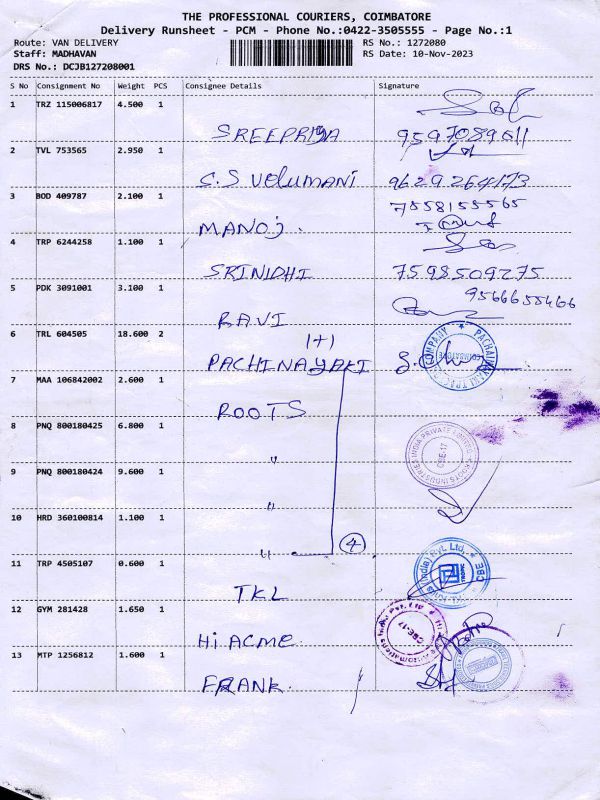 THE PROFESSIONAL COURIERS, COIMBATORE
Delivery Runsheet - PCM - Phone No.:0422-3505555 - Page No.:1
Route: VAN DELIVERY RS No.: 1272080
Staff: MADHAVAN RS Date: 10-Nov-2023
DRS No.: DCJB127208001
S No Consignment No Weight PCS Consignee Details Signature
1 TRZ 115006817 4.500 1
SREEPRIYA 9597089611
2 TVL 753565 2.950 1
C.S VELUMANI 9629264173
3 BOD 409787 2.100 1 7558155565
MANOJ.
4 TRP 6244258 1.100 1
SRINIDHI 7598509275
5 PDK 3091001 3.100 1 9566655466
RAVI
6 TRL 604505 18.600 2 1+1
PACHINAYAKI
7 MAA 106842002 2.600 1
ROOTS
8 PNQ 800180425 6.800 1
"
9 PNQ 800180424 9.600 1
"
10 HRD 360100814 1.100 1
" 4
11 TRP 4505107 0.600 1
TKL
12 GYM 281428 1.650 1
Hi ACME
13 MTP 1256812 1.600 1
FRANK.
COMPANY * PACHAINAYAKI
COIMBATORE
ROOTS INDUSTRIES INDIA PRIVATE LIMITED
CBE-17
(India) Pvt. Ltd.
CBE
CBE-17